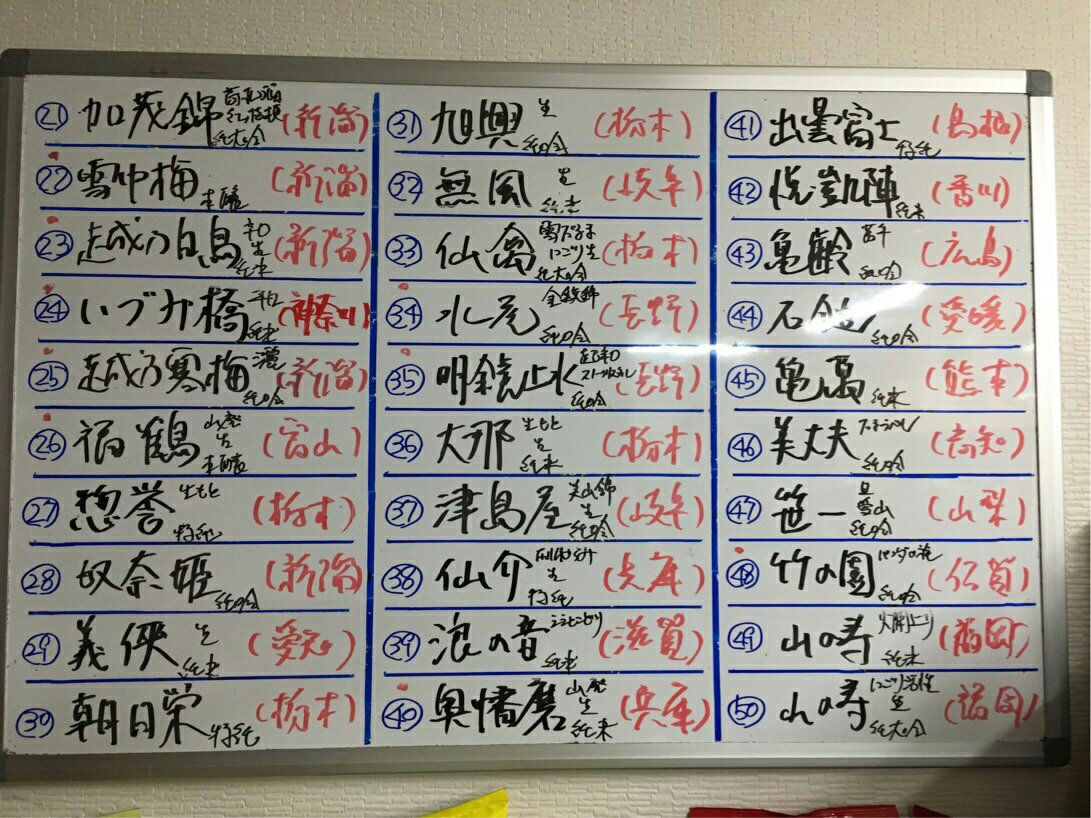 ㉑ 加茂錦 純大吟 (新潟)
㉒ 雪中梅 本醸 (新潟)
㉓ 越乃白鳥 生 純米 (新潟)
㉔ いづみ橋 純米 (神奈川)
㉕ 越乃寒梅 灑 純吟 (新潟)
㉖ 福鶴 山廃 生 本醸 (富山)
㉗ 惣誉 生もと 特純 (栃木)
㉘ 奴奈姫 純吟 (新潟)
㉙ 義侠 生 純米 (愛知)
㉚ 朝日栄 特純 (栃木)
㉛ 旭興 生 純吟 (栃木)
㉜ 無風 生 純米 (岐阜)
㉝ 仙禽 雪だるま にごり生 純大吟 (栃木)
㉞ 水尾 金紋錦 純吟 (長野)
㉟ 明鏡止水 純吟 (長野)
㊱ 大那 生もと 生 純米 (栃木)
㊲ 津島屋 美山錦 生 純吟 (岐阜)
㊳ 仙介 生 特純 (兵庫)
㊴ 浪の音 純米 (滋賀)
㊵ 奥播磨 山廃 生 純米 (兵庫)
㊶ 出雲富士 特純 (島根)
㊷ 悦凱陣 純米 (香川)
㊸ 亀齢 萬年 純吟 (広島)
㊹ 石鎚 純吟 (愛媛)
㊺ 亀萬 純米 (熊本)
㊻ 美丈夫 純吟 (高知)
㊼ 笹一 純吟 (山梨)
㊽ 竹の園 純吟 (佐賀)
㊾ 山の壽 純米 (福岡)
㊿ 山の壽 にごり活性 生 純大吟 (福岡)